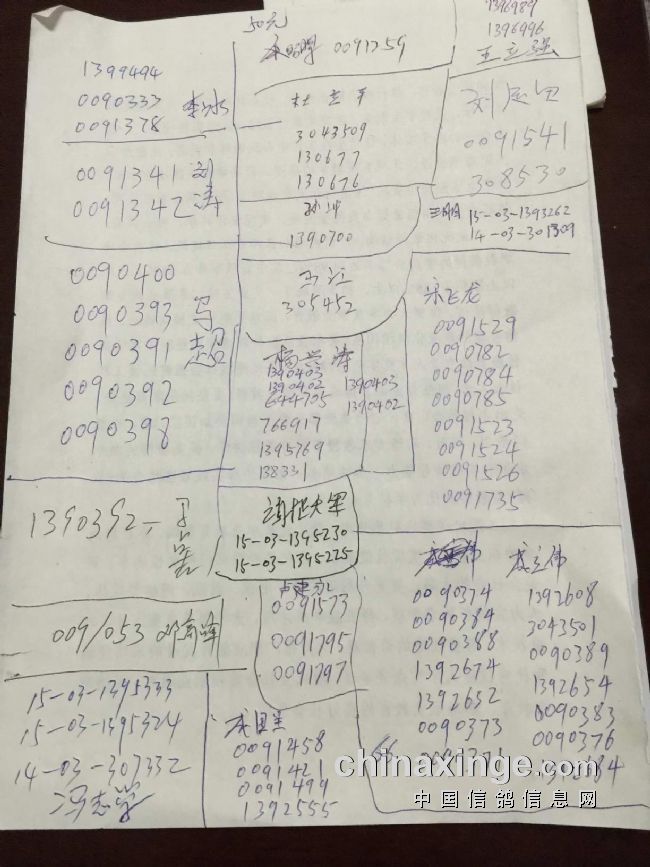 50元
1396989
1396996
王立强
0091259
1399494
0090333
0091378 李冰
杜立平
3043509
130677
130676
0091541
308530
0091341 刘
0091342 涛
孙冲
1390700
15-03-1393262
14-03-301309
王江
305452
0090400
0090393 马
0090391 超
0090392
0090398
宋飞龙
0091529
0090782
0090784
0090785
0091523
0091524
0091526
0091735
杨兴涛
1390403
1390402
644705
766917
1395769
138331
1390403
1390402
1390392
15-03-1395230
15-03-1395225
卢建永
0091573
0091795
0091797
0090374
0090384
0090388
1392674
1392652
0090373
66
成立伟
1392608
3043501
0090389
1392654
0090383
0090376
091053 邓高峰
15-03-1395333
15-03-1395324
14-03-307332
冯志学
0091458
0091421
0091499
1392555
chinaxinge.com
中国信鸽信息网